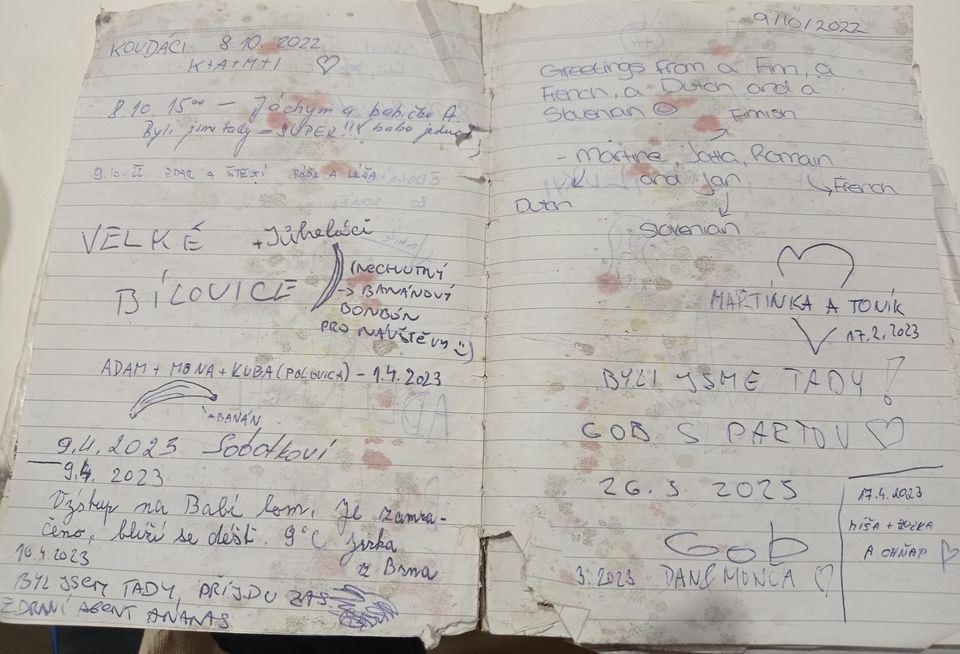 KOUDÁCI 8.10.2022
K+A+M+I ♡
8.10. 15⁰⁰ – Jáchym a babička A.
Byli jsme tady – SUPER!!!
9.10. ZDAR A ŠTĚSTÍ
VELKÉ + Jůheláci
BÍLOVICE
(NECHUTNÝ
→ BANÁNOVÝ
BONBÓN
PRO NÁVŠTĚVY :))
ADAM + MONA + KUBA (POLOVICA) – 1.4.2023
→ BANÁN
9.4.2023 Sobotkovi
9.4. 2023
Výstup na Babí lom. Je zamra-
čeno, blíží se déšť. 9°C Jirka
z Brna
10.4.2023
BYL JSEM TADY, PŘÍJDU ZAS
ZDRAVÍ AGENT ANANAS
9/10/2022
Greetings from a Finn, a
French, a Dutch and a
Slovenian ☺
Finnish
- Martine, Jatta, Romain
and Jan
French
Dutch
Slovenian
MARTÍNKA A TONÍK
17.2.2023
BYLI JSME TADY!
GOB S PARTOU ♡
26.3. 2025
Gob
3.2023 DAN & MONČA ♡
17.4.2023
MÍŠA +
A OHŇAP ♡